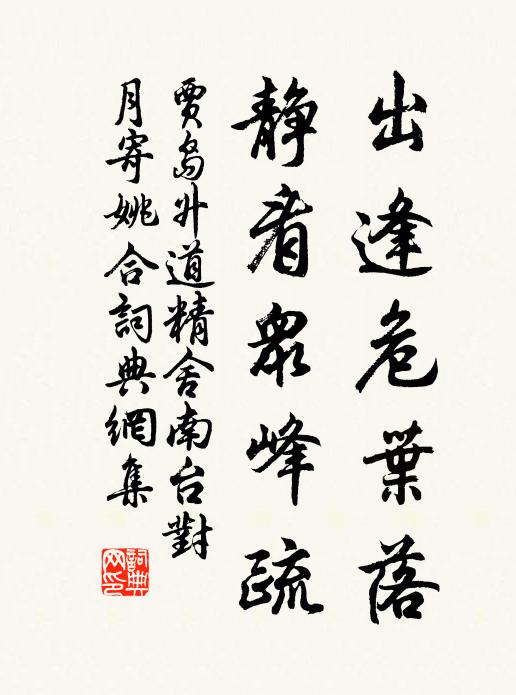 出逢危葉落
靜看眾峰疏
賈島升道精舍南台對
月寄姚合詞典網集
詞典
网印